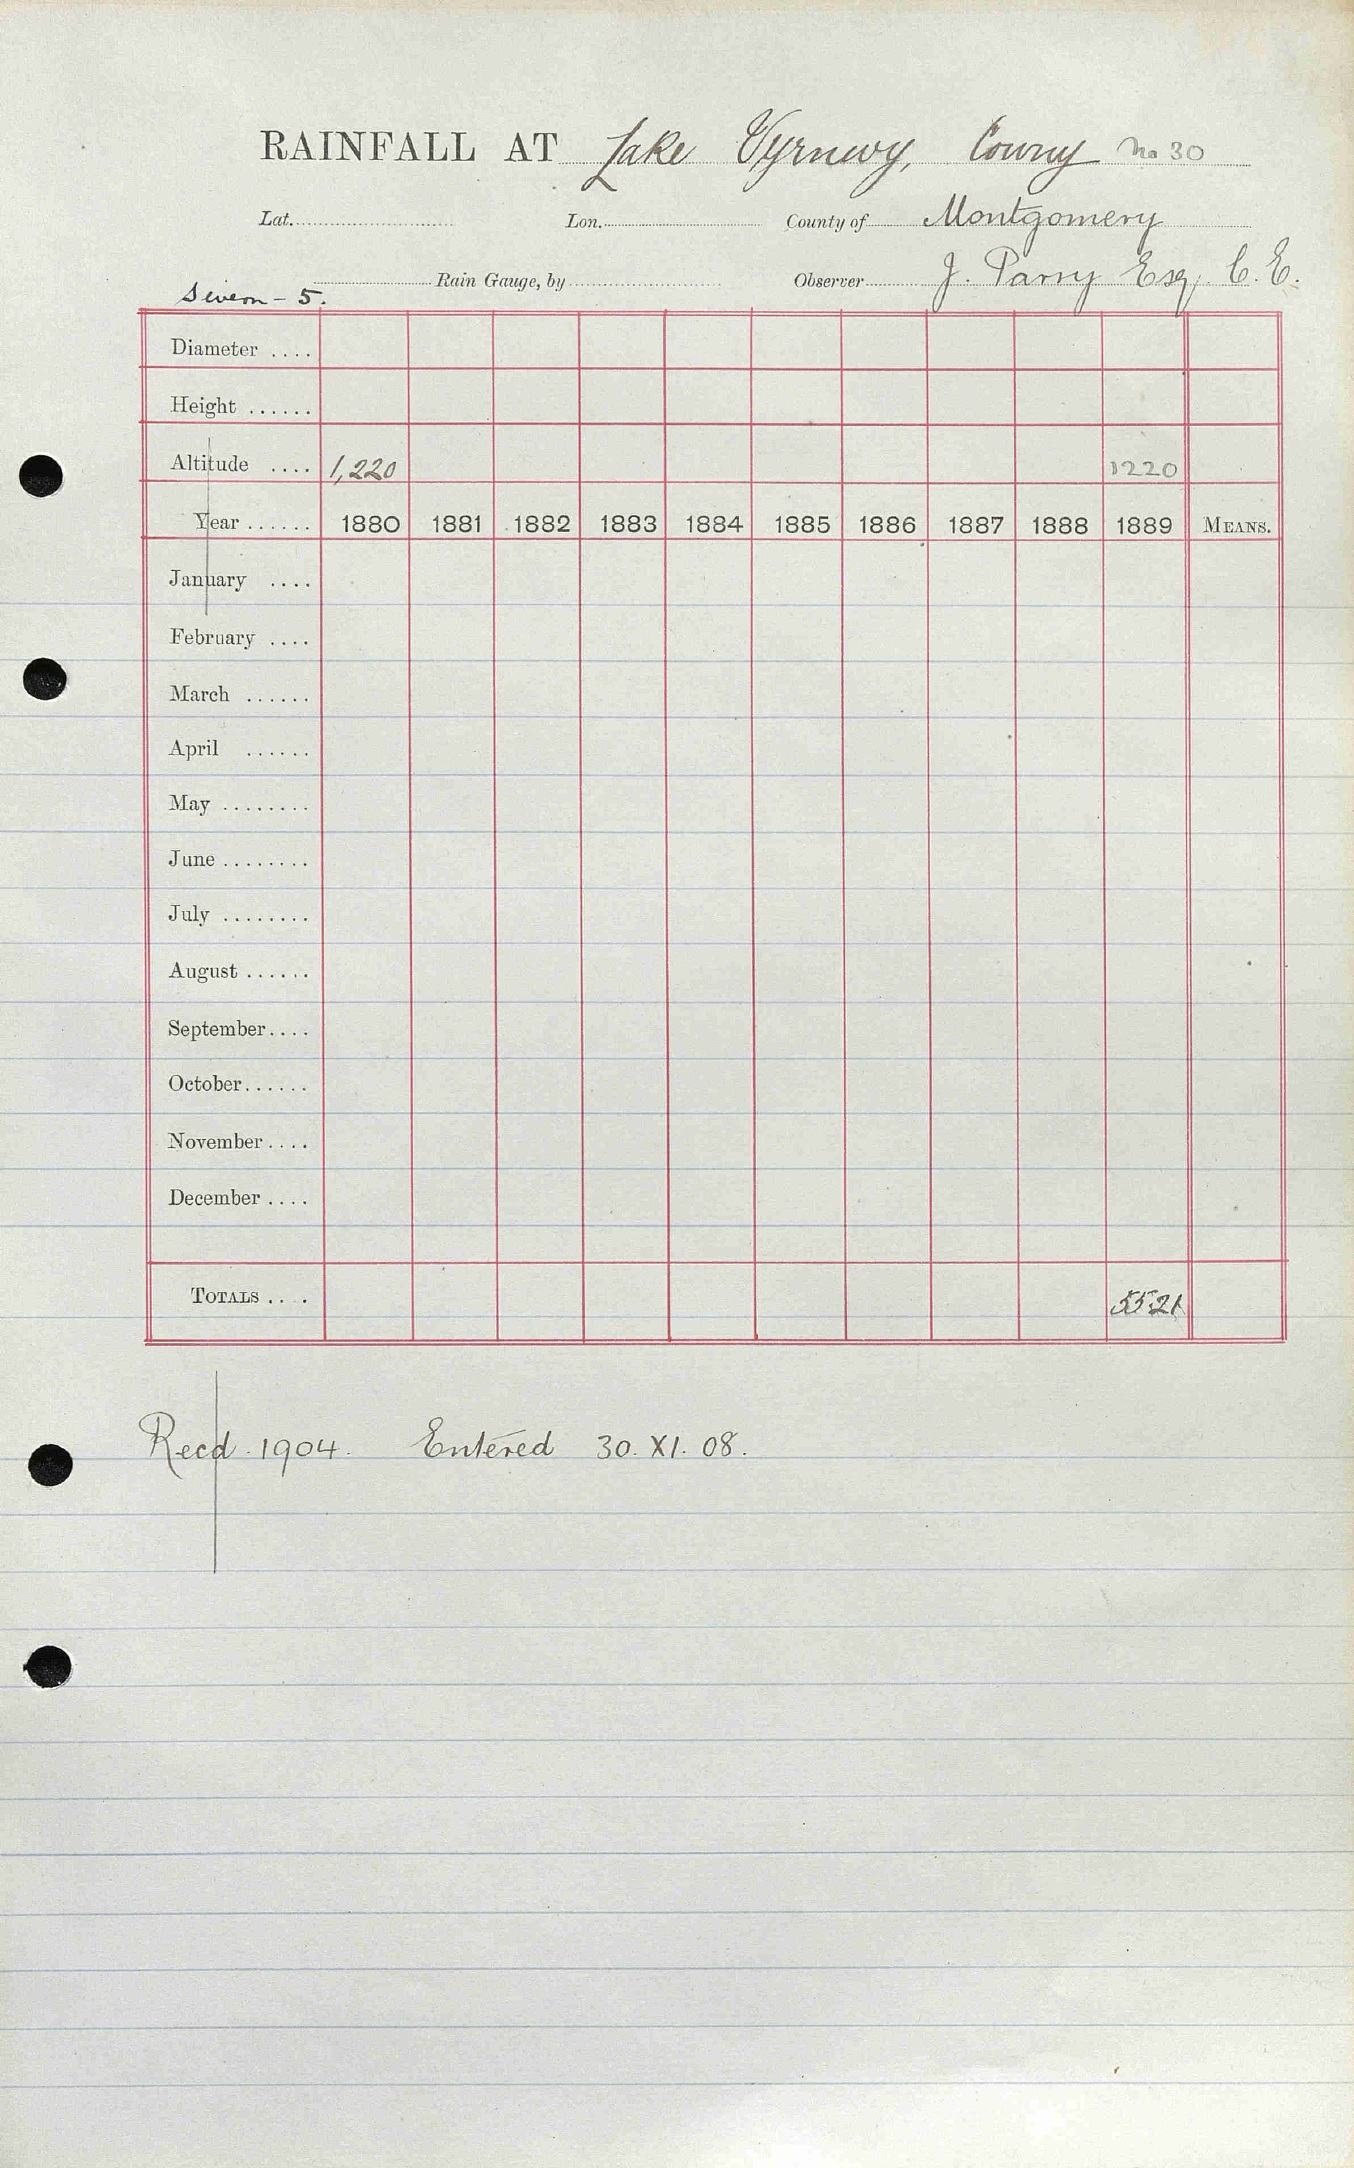 RAINFALL AT Lake Vyrnwy, Cowny No 30
Lat. Lon. County of Montgomery
Rain Gauge, by Observer J. Parry Esq. C.E.
Severn - 5.
Diameter ....
Height ......
Altitude .... 1,220 1220
Year ...... 1880 1881 1882 1883 1884 1885 1886 1887 1888 1889 MEANS.
January ....
February ....
March ......
April ......
May ........
June ........
July ........
August ......
September ....
October ......
November ....
December ....
TOTALS .... 55.21
Recd. 1904. Entered 30. XI. 08.